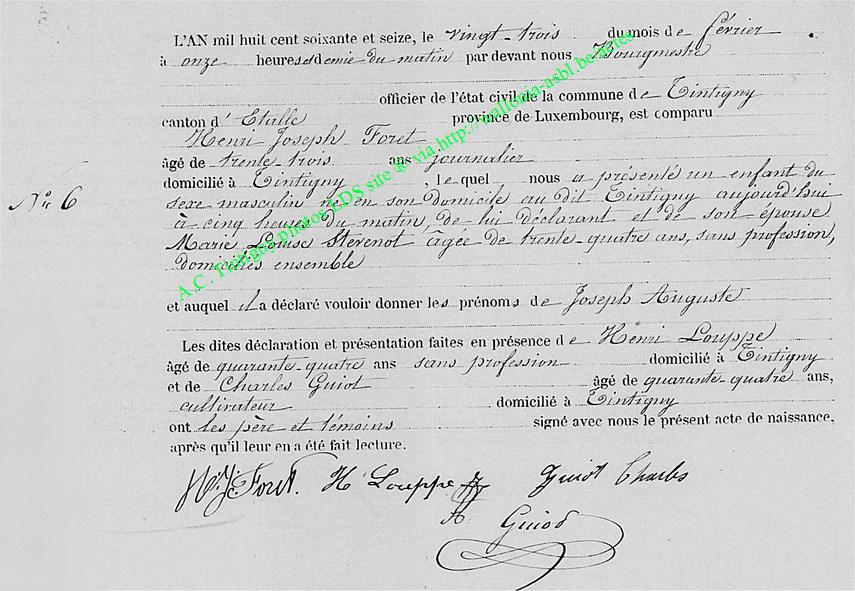 L'AN mil huit cent soixante et seize, le vingt-trois du mois de février
à onze heures et demie du matin par devant nous Bourgmestre
officier de l'état civil de la commune de Tintigny
canton d'Etalle province de Luxembourg, est comparu
Henri Joseph Foret
âgé de trente-trois ans journalier
domicilié à Tintigny, lequel nous a présenté un enfant du
N° 6
sexe masculin né en son domicile au dit Tintigny aujourd'hui
à cinq heures du matin, de lui déclarant et de son épouse
Marie Louise Stevenot âgée de trente-quatre ans, sans profession,
domiciliés ensemble
et auquel il a déclaré vouloir donner les prénoms de Joseph Auguste
Les dites déclaration et présentation faites en présence de Henri Louppe
âgé de quarante-quatre ans sans profession domicilié à Tintigny
et de Charles Guiot âgé de quarante-quatre ans,
cultivateur domicilié à Tintigny
ont les père et témoins signé avec nous le présent acte de naissance,
après qu'il leur en a été fait lecture.
H. J. Foret. H Louppe Guiot Charles
Guiod
A.C. Tintigny photos LDS site ® via http://wallonia-asbl.be/actes